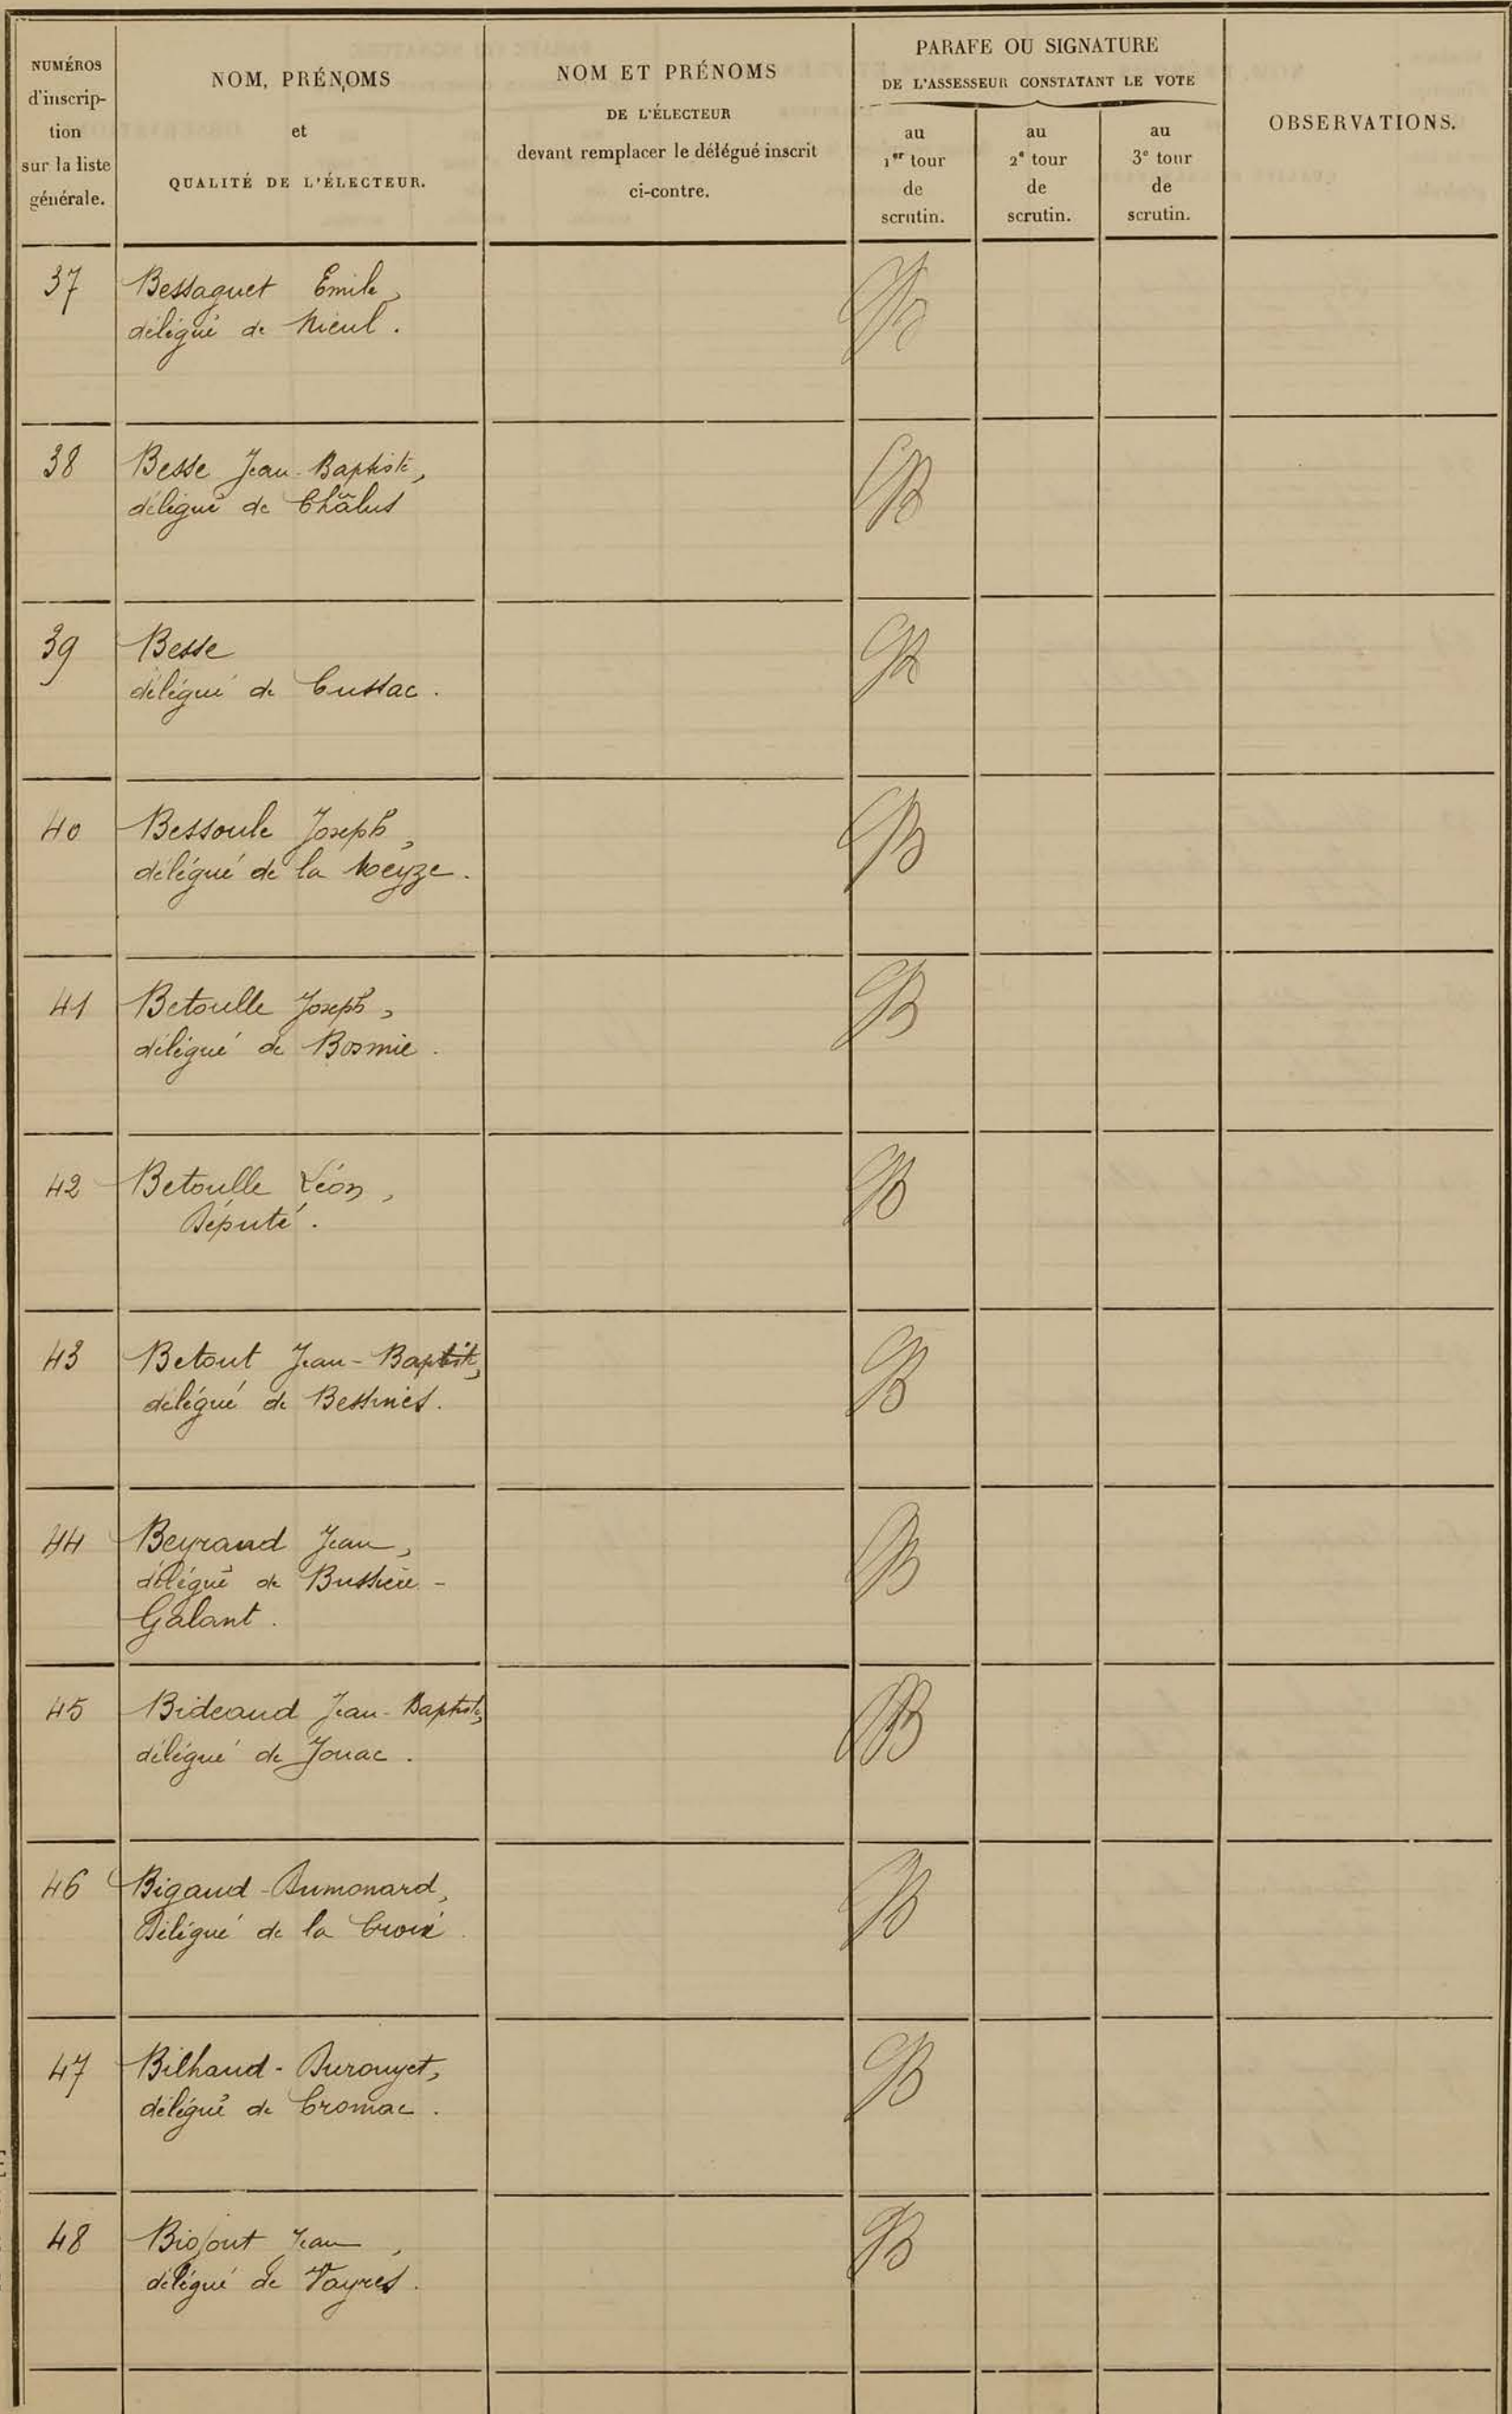 NUMÉROS
d'inscrip-
tion
sur la liste
générale.
NOM, PRÉNOMS
et
QUALITÉ DE L'ÉLECTEUR.
NOM ET PRÉNOMS
DE L'ÉLECTEUR
devant remplacer le délégué inscrit
ci-contre.
PARAFE OU SIGNATURE
DE L'ASSESSEUR CONSTATANT LE VOTE
au
1er tour
de
scrutin.
au
2e tour
de
scrutin.
au
3e tour
de
scrutin.
OBSERVATIONS.
37 Bessaguet Emile,
délégué de Nieul.
38 Besse Jean-Baptiste,
délégué de Châlus
39 Besse
délégué de Cussac.
40 Bessoule Joseph,
délégué de la Meyze.
41 Betoulle Joseph,
délégué de Bosmie.
42 Betoulle Léon,
Député.
43 Betout Jean-Baptiste,
délégué de Bessines.
44 Beyrand Jean,
délégué de Bussière-
Galant.
45 Bideaud Jean-Baptiste,
délégué de Jouac.
46 Bigaud-Dumonard,
Délégué de la Croix
47 Bilhaud-Durouyet,
délégué de Cromac.
48 Jean,
délégué de Vayres.